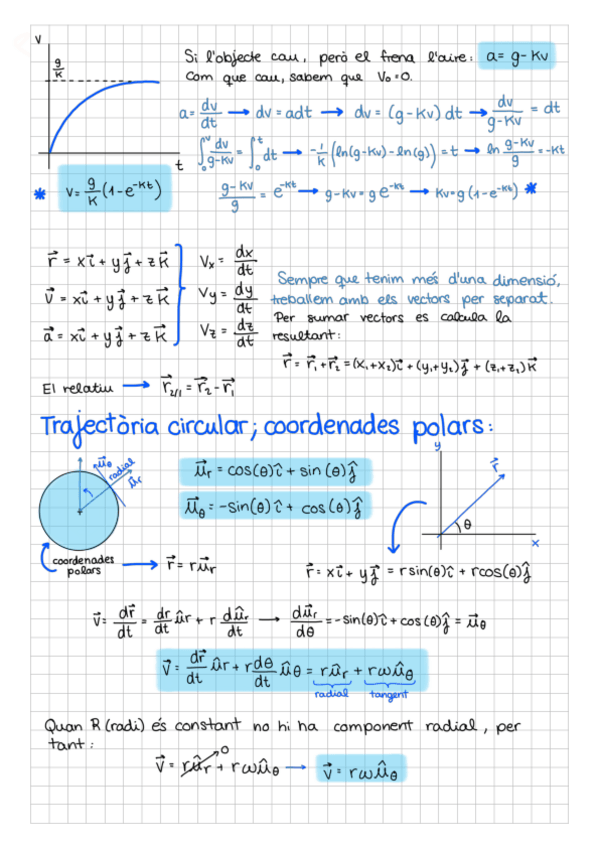 v
g/K
t
Si l'objecte cau, però el frena l'aire: a = g - Kv
Com que cau, sabem que V₀ = 0.
a = dv/dt → dv = adt → dv = (g - Kv) dt → dv/(g - Kv) = dt
∫₀ᵛ dv/(g - Kv) = ∫₀ᵗ dt → -1/K (ln(g - Kv) - ln(g)) = t → ln (g - Kv)/g = -Kt
* v = g/K (1 - e^(-Kt))
(g - Kv)/g = e^(-Kt) → g - Kv = g e^(-Kt) → Kv = g (1 - e^(-Kt)) *
r⃗ = xi⃗ + yj⃗ + zk⃗
v⃗ = xi⃗ + yj⃗ + zk⃗
a⃗ = xi⃗ + yj⃗ + zk⃗
Vx = dx/dt
Vy = dy/dt
Vz = dz/dt
Sempre que tenim més d'una dimensió,
treballem amb els vectors per separat.
Per sumar vectors es calcula la
resultant:
r⃗ = r⃗₁ + r⃗₂ = (x₁+x₂)i⃗ + (y₁+y₂)j⃗ + (z₁+z₂)k⃗
El relatiu → r⃗₂/₁ = r⃗₂ - r⃗₁
Trajectòria circular; coordenades polars:
u⃗θ
radial
u⃗r
coordenades
polars
→ r⃗ = r u⃗r
u⃗r = cos(θ)î + sin(θ)ĵ
u⃗θ = -sin(θ)î + cos(θ)ĵ
y
r⃗
θ
x
r⃗ = xi⃗ + yj⃗ = rsin(θ)î + rcos(θ)ĵ
v⃗ = dr⃗/dt = dr/dt ûr + r dûr/dt → du⃗r/dθ = -sin(θ)î + cos(θ)ĵ = u⃗θ
v⃗ = dr⃗/dt ûr + r dθ/dt ûθ = rûr + rωûθ
radial tangent
Quan R (radi) és constant no hi ha component radial, per
tant:
v⃗ = rûr⁰ + rωûθ → v⃗ = rωûθ